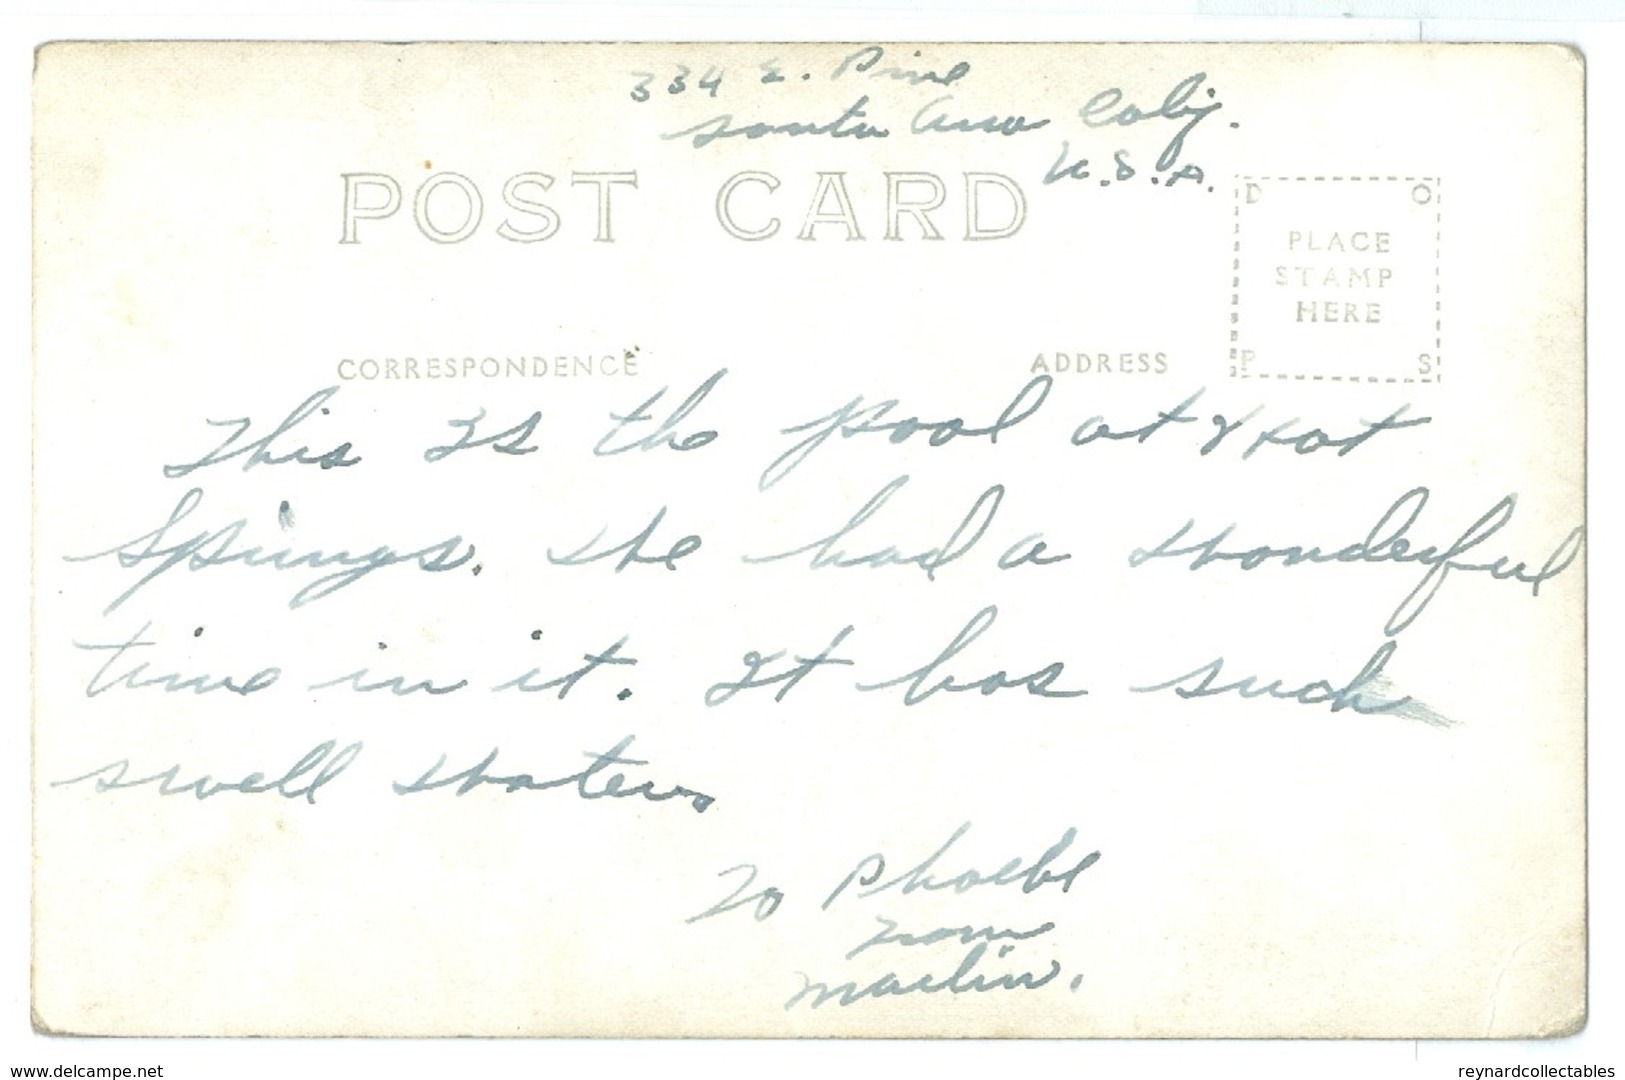 334 E. Pine
Santa Ana Calif.
U.S.A.
POST CARD
D O
PLACE
STAMP
HERE
P S
CORRESPONDENCE
ADDRESS
This Is the pool at Hot
Springs. We had a wonderful
time in it. It has such
swell water.
To Phoebe
From
Marlin.
www.delcampe.net
reynardcollectables